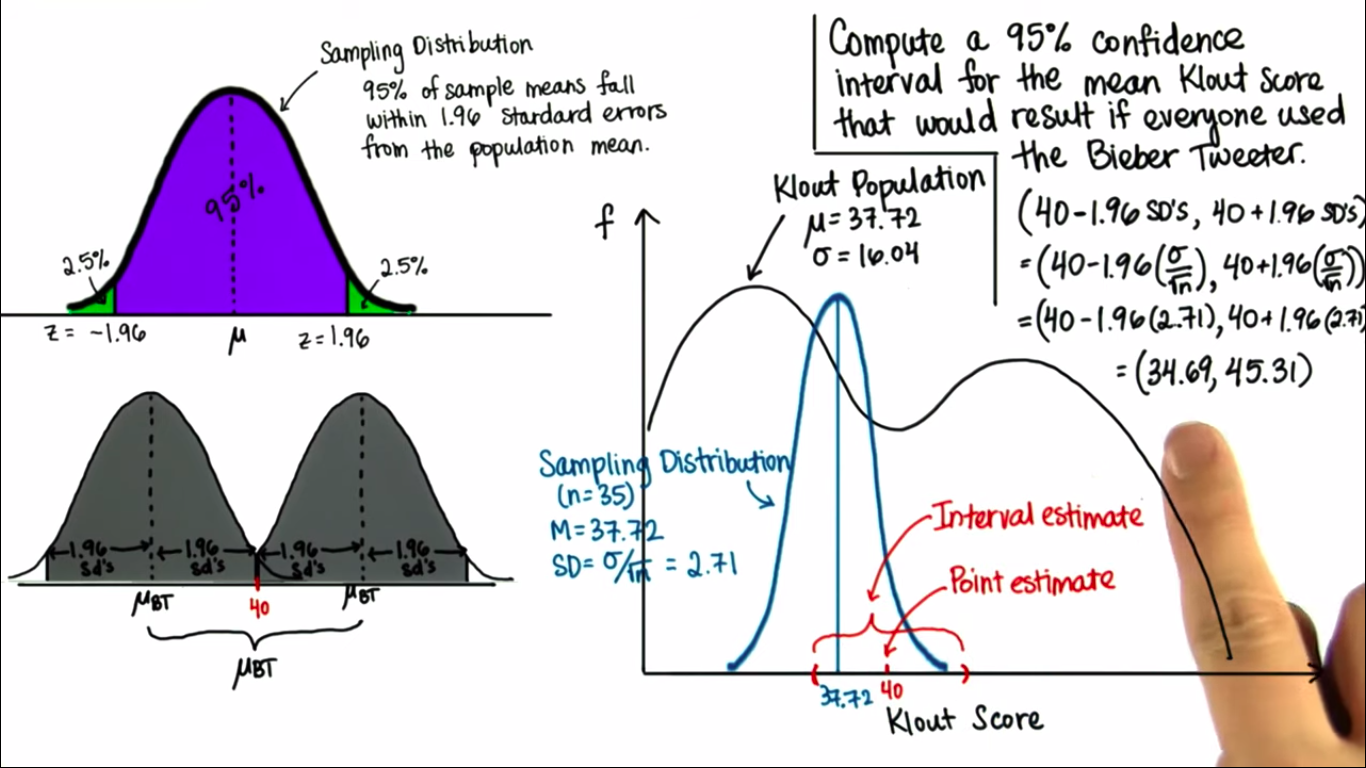 Sampling Distribution
95% of sample means fall
within 1.96 standard errors
from the population mean.
95%
2.5%
2.5%
z = -1.96
μ
z = 1.96
1.96
sd's
1.96
sd's
1.96
sd's
1.96
sd's
μBT
40
μBT
μBT
Compute a 95% confidence
interval for the mean Klout score
that would result if everyone used
the Bieber Tweeter.
(40-1.96 SD's, 40+1.96 SD's)
=(40-1.96(σ/√n), 40+1.96(σ/√n))
=(40-1.96(2.71), 40+1.96(2.71)
=(34.69, 45.31)
Klout Population
μ = 37.72
σ = 16.04
f
Sampling Distribution
(n=35)
M = 37.72
SD = σ/√n = 2.71
Interval estimate
Point estimate
37.72
40
Klout Score